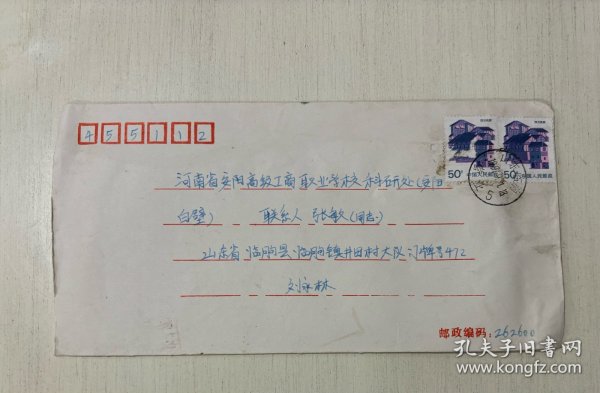 455112
50分 中国人民邮政
50分 中国人民邮政
河南省安阳高级工商职业学校科研处(安阳
白壁) 联系人 张敏(同志)
山东省临朐县临朐镇井田村大队门牌号472
刘永林
邮政编码:262600
孔夫子旧书网
www.kongfz.com